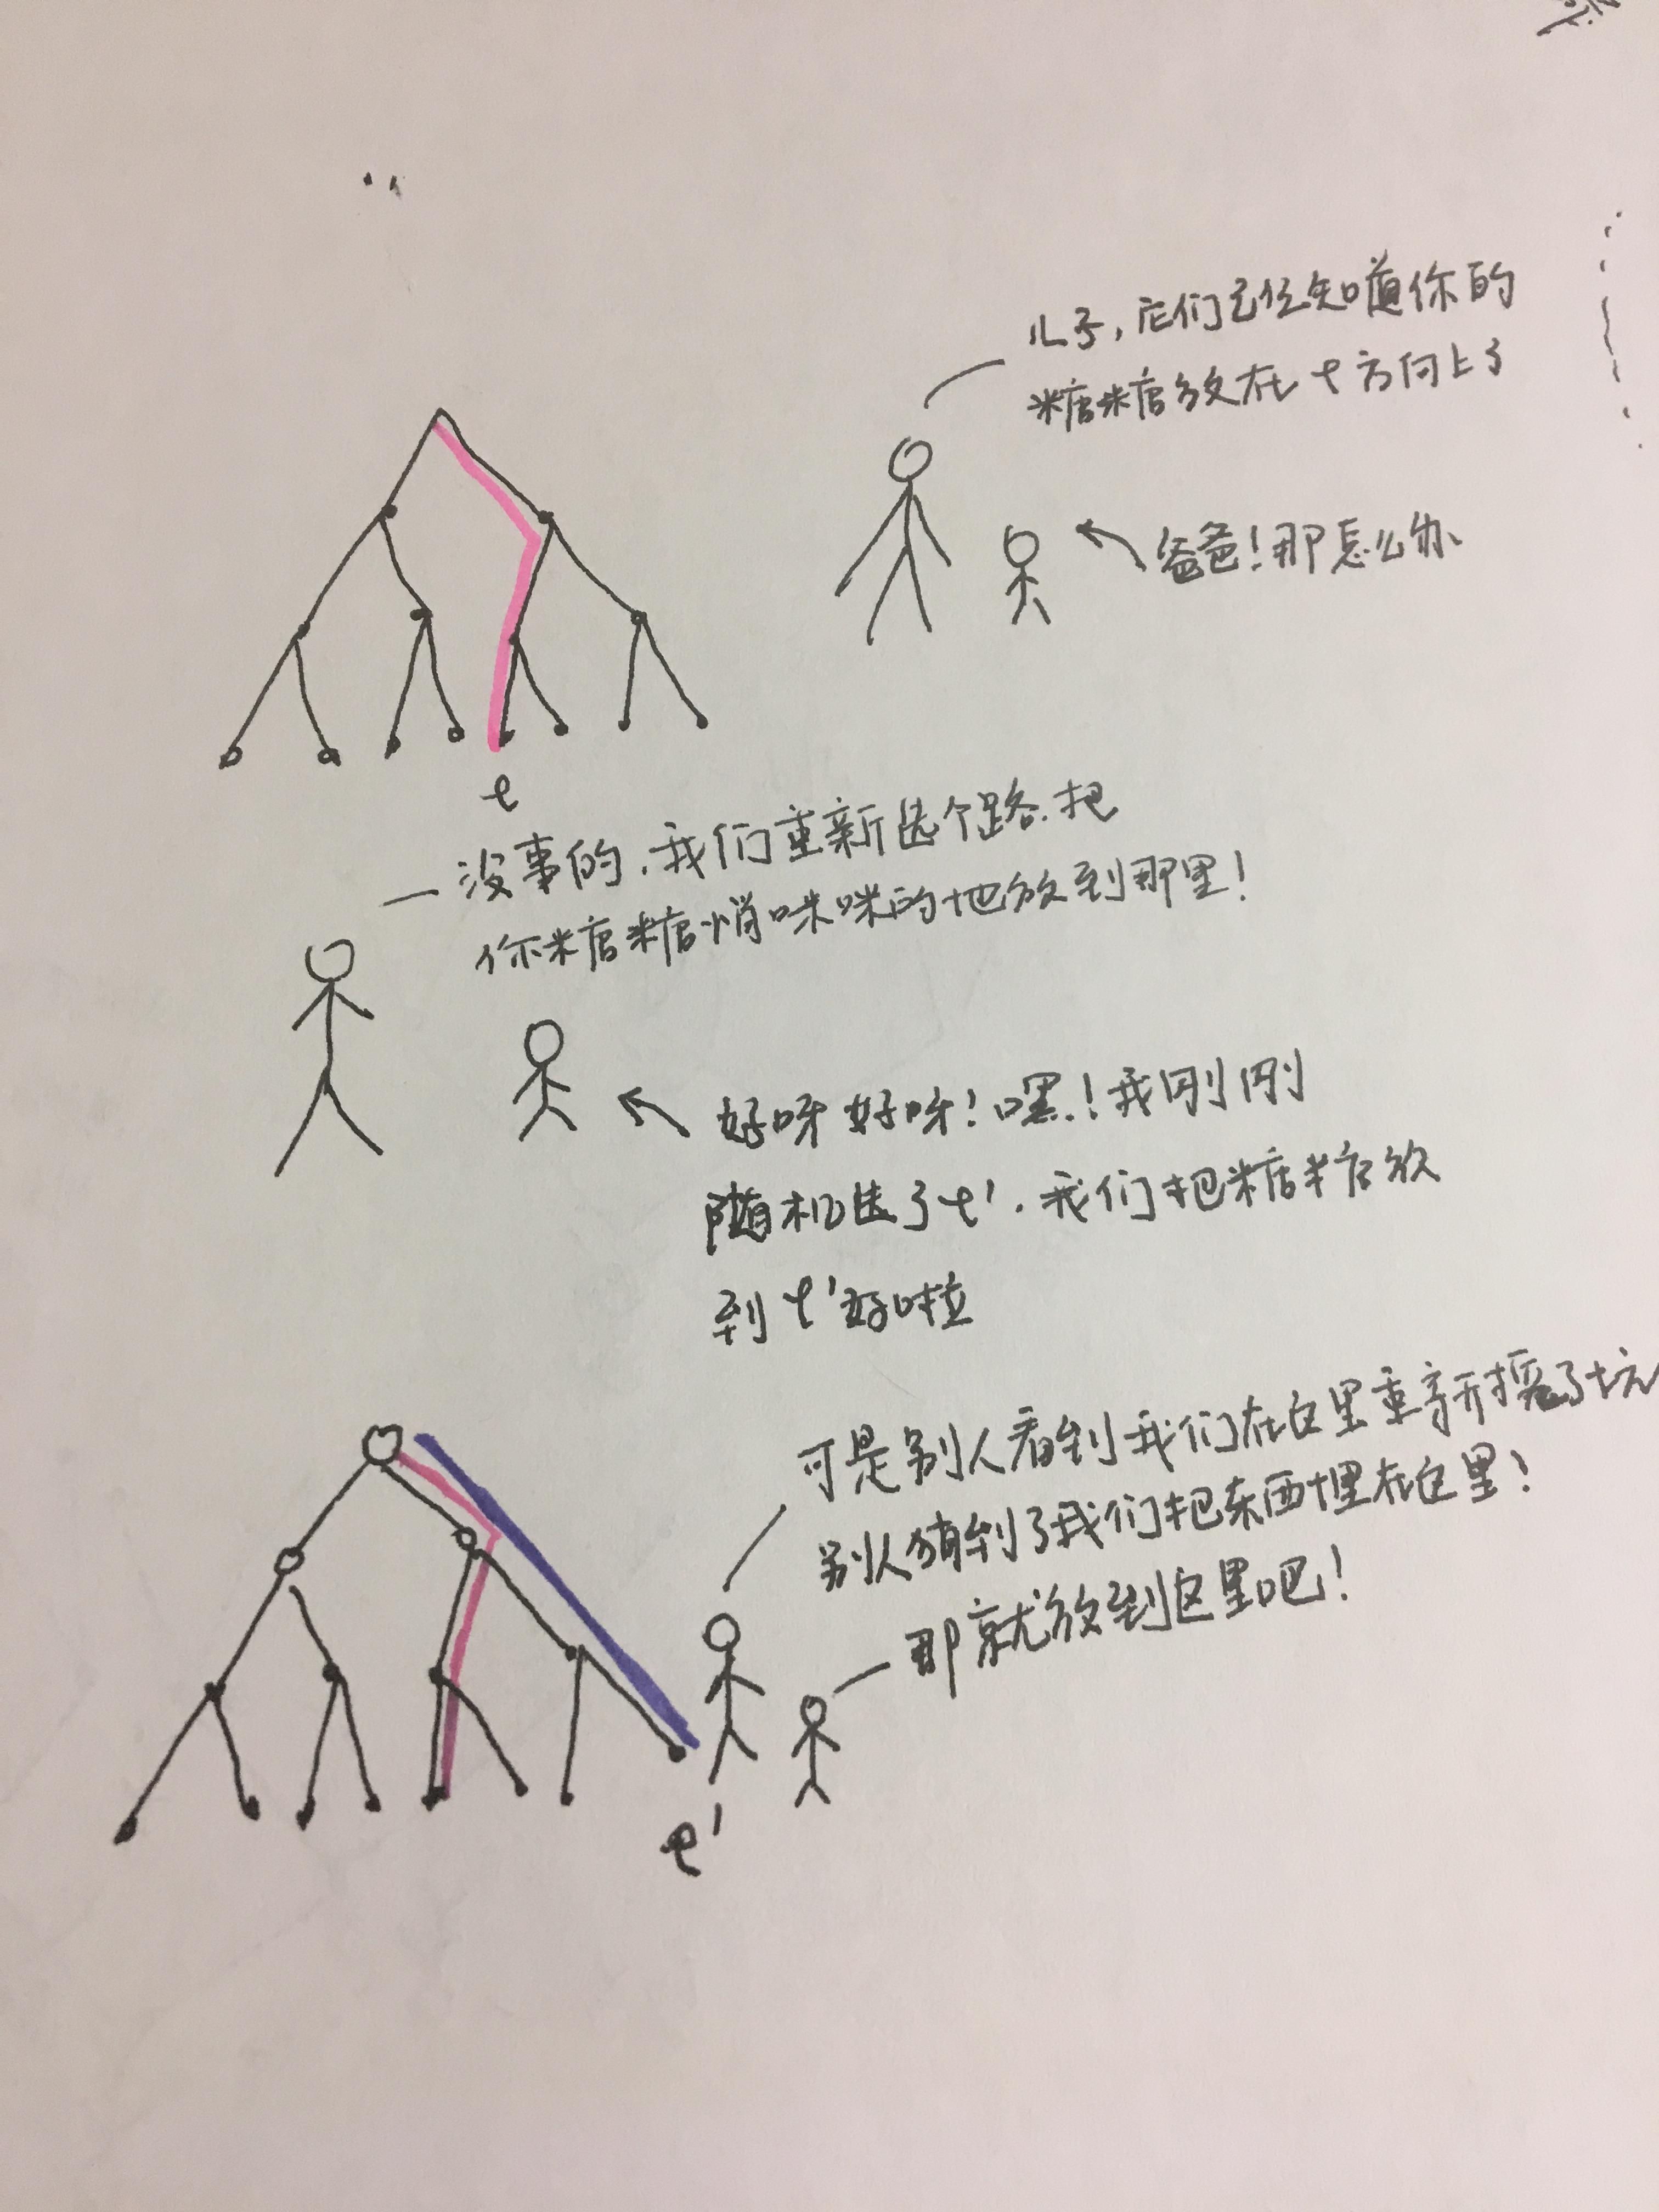 儿子,它们已经知道你的
糖糖放在 t 方向上了
爸爸!那怎么办
t
没事的,我们重新选个路.把
你糖糖悄咪咪的地放到那里!
好呀好呀!嘿!我刚刚
随机选了t'.我们把糖糖放
到 t'好啦
可是别人看到我们在这里重新挖了坑
别人猜到了我们把东西埋在这里!
那就放到这里吧!
t'